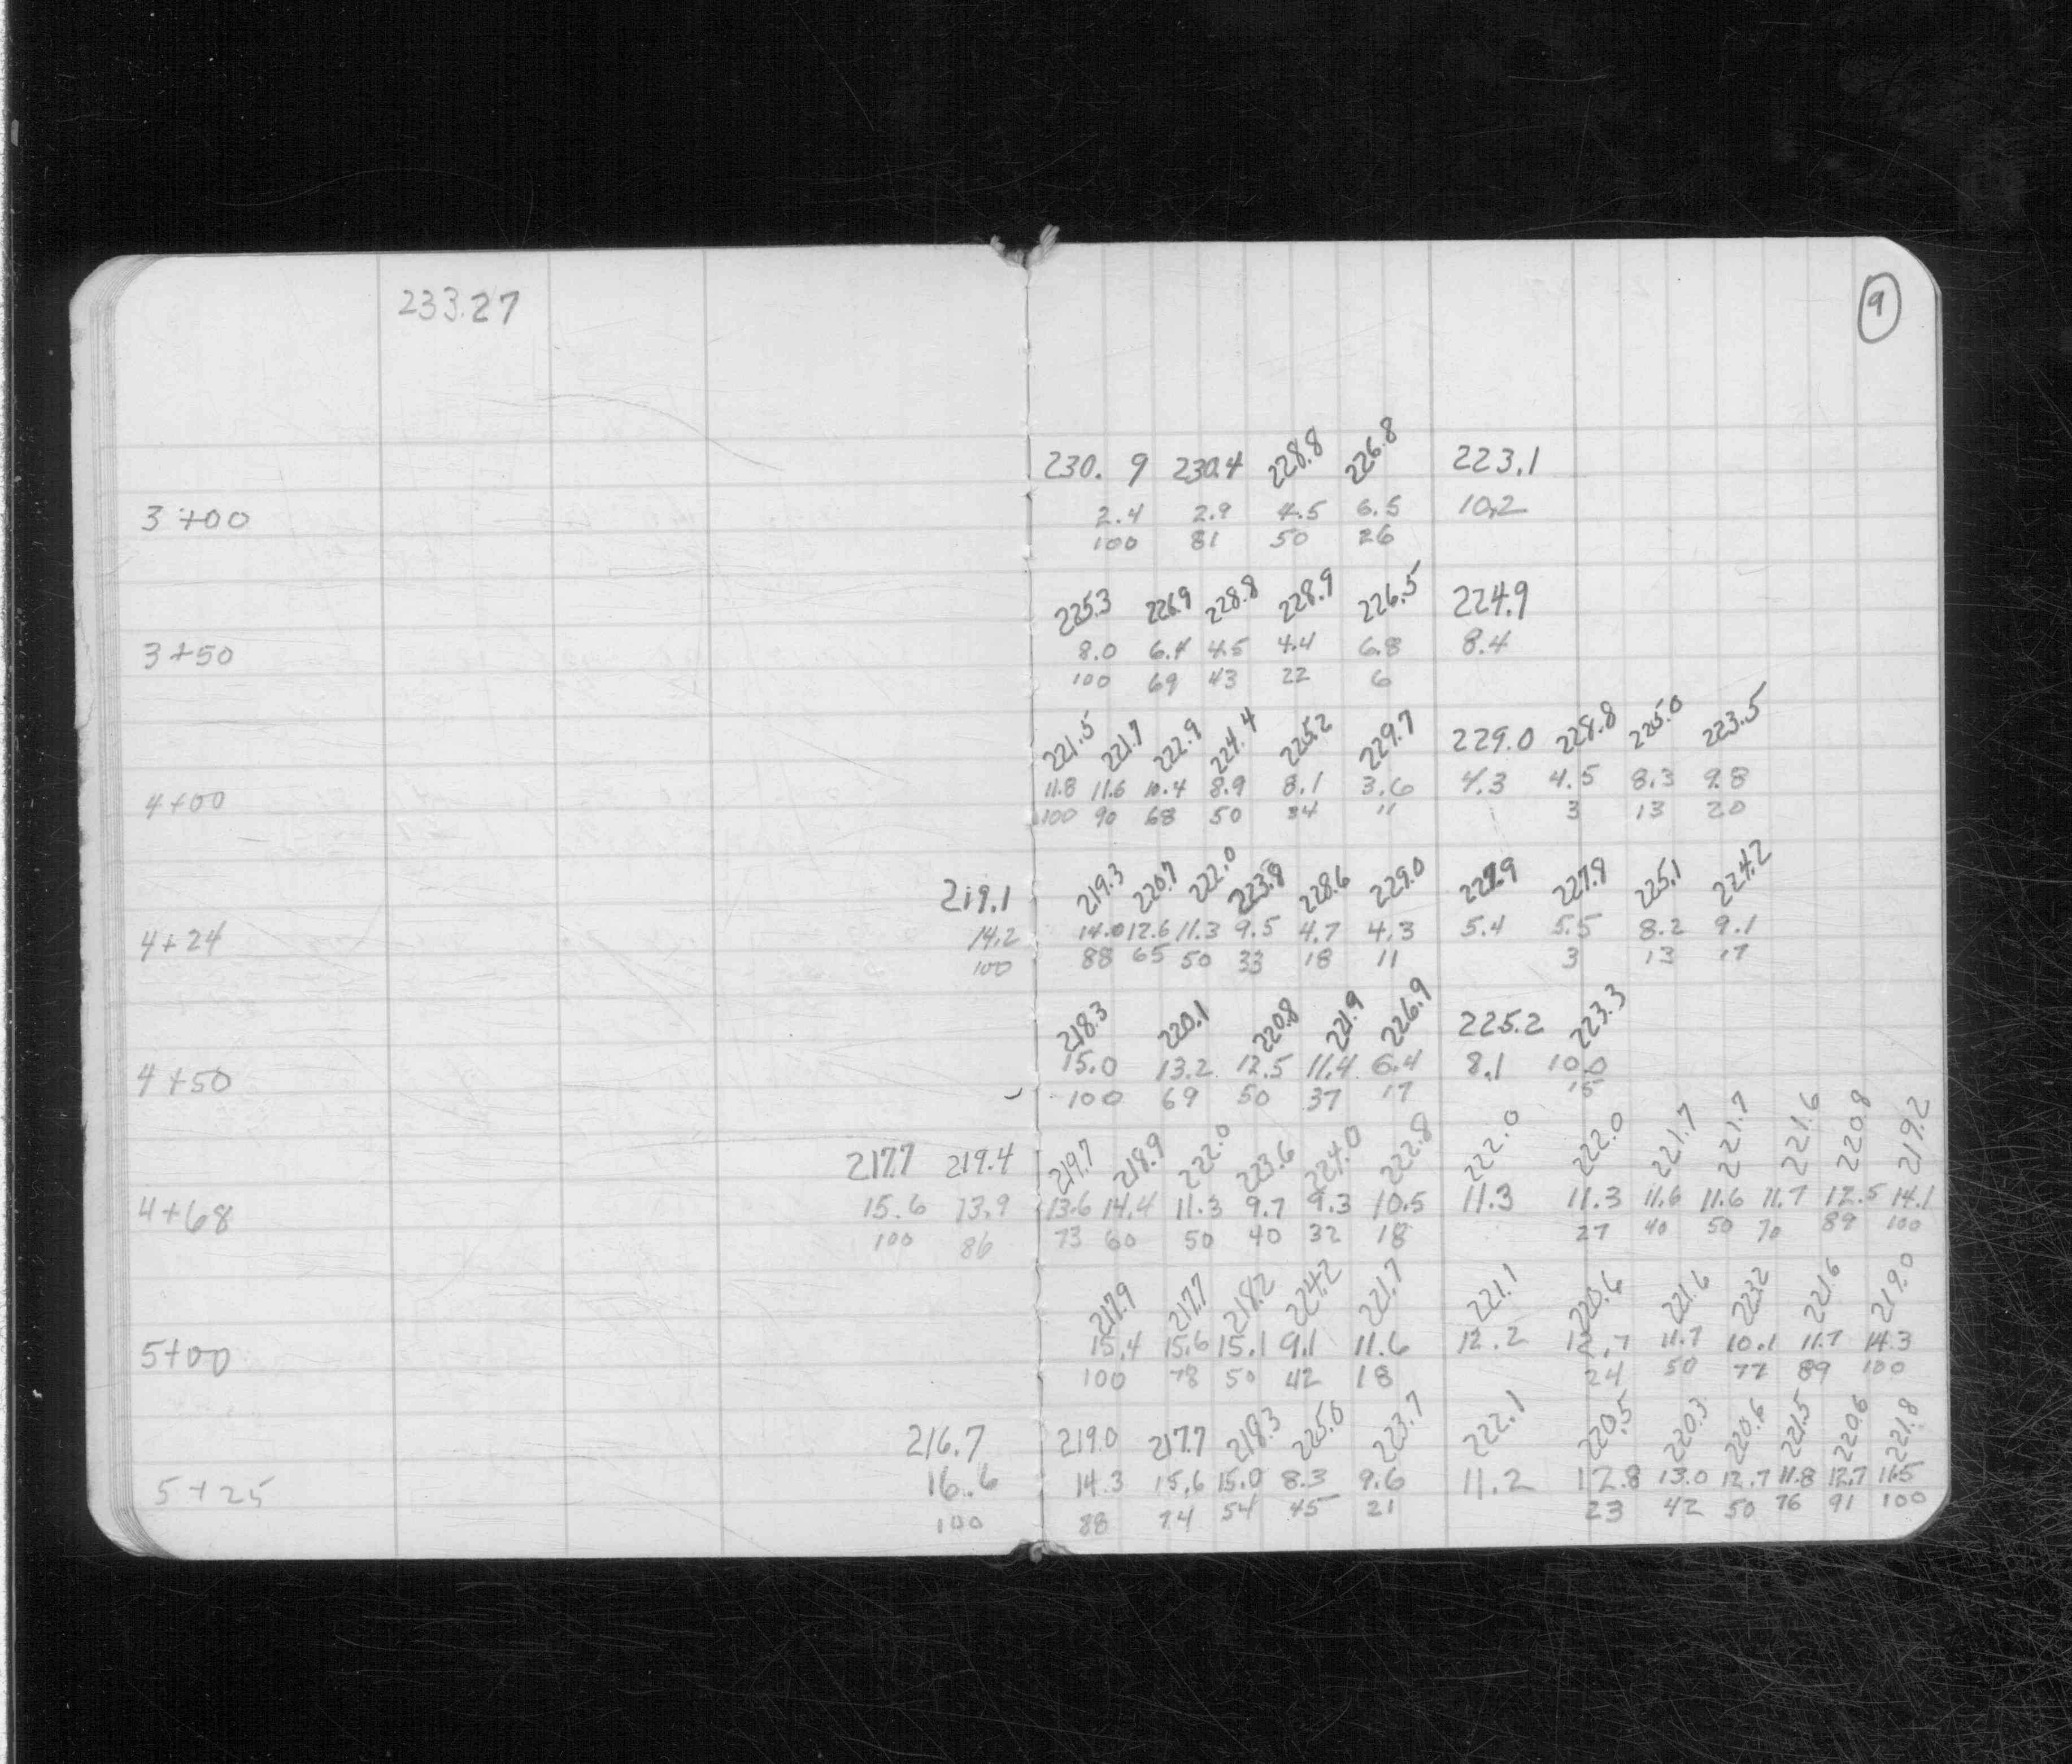 233.27
9
230.9 230.4 228.8 226.8 223.1
3+00 2.4 2.9 4.5 6.5 10.2
100 81 50 26
225.3 226.9 228.8 228.9 226.5 224.9
3+50 8.0 6.4 4.5 4.4 6.8 8.4
100 69 43 22 6
221.5 221.7 222.9 224.4 225.2 229.7 229.0 228.8 225.0 223.5
4+00 11.8 11.6 10.4 8.9 8.1 3.6 4.3 4.5 8.3 9.8
100 90 68 50 34 11 3 13 20
219.1 219.3 220.7 222.0 223.8 228.6 229.0 227.9 227.8 225.1 224.2
4+24 14.2 14.0 12.6 11.3 9.5 4.7 4.3 5.4 5.5 8.2 9.1
100 88 65 50 33 18 11 3 13 17
218.3 220.1 220.8 221.9 226.9 225.2 223.3
4+50 15.0 13.2 12.5 11.4 6.4 8.1 10.0
100 69 50 37 17 15
217.7 219.4 219.7 218.9 222.0 223.6 224.0 222.8 222.0 222.0 221.7 221.7 221.6 220.8 219.2
4+68 15.6 13.9 13.6 14.4 11.3 9.7 9.3 10.5 11.3 11.3 11.6 11.6 11.7 12.5 14.1
100 86 73 60 50 40 32 18 27 40 50 70 89 100
217.9 217.7 218.2 224.2 221.7 221.1 220.6 221.6 223.2 221.6 219.0
5+00 15.4 15.6 15.1 9.1 11.6 12.2 12.7 11.7 10.1 11.7 14.3
100 78 50 42 18 24 50 77 89 100
216.7 219.0 217.7 218.3 225.0 223.7 222.1 220.5 220.3 220.6 221.5 220.6 221.8
5+25 16.6 14.3 15.6 15.0 8.3 9.6 11.2 12.8 13.0 12.7 11.8 12.7 11.5
100 88 74 54 45 21 23 42 50 76 91 100